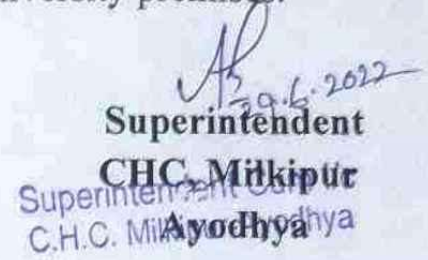 versity premises.
29.6.2022
Superintendent
CHC, Milkipur
Ayodhya
Superintendent
C.H.C. Milkipur Ayodhya